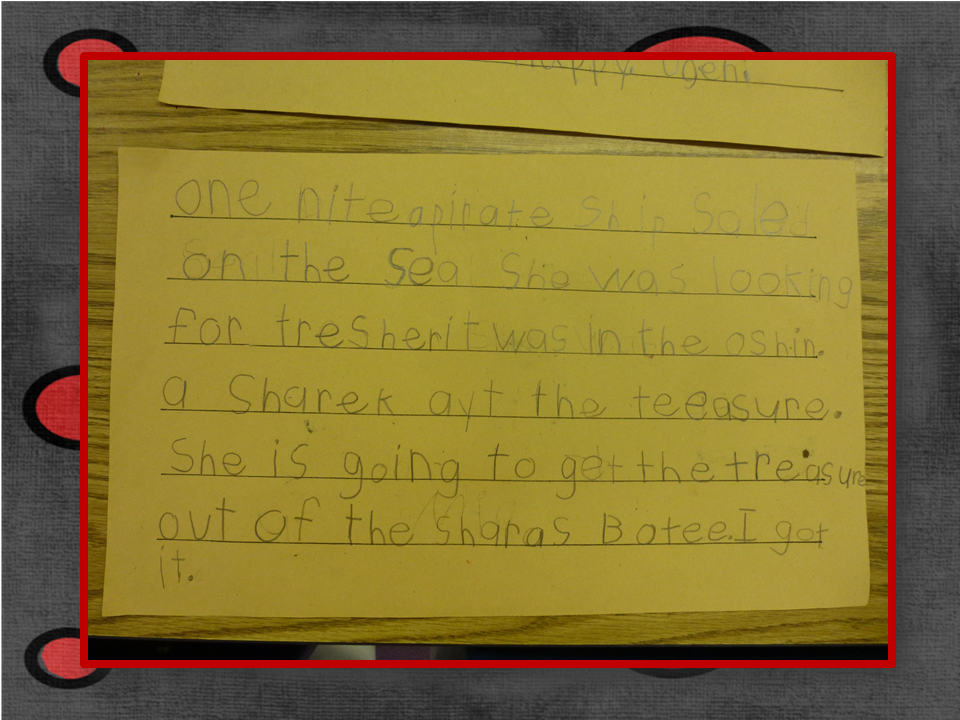 happy. Ogen.
one nite a pirate Ship Saled
on the Sea She was looking
for tresher it was in the oshin.
a Sharek ayt the teeasure.
She is going to get the treasure
out of the sharas Botee. I got
it.